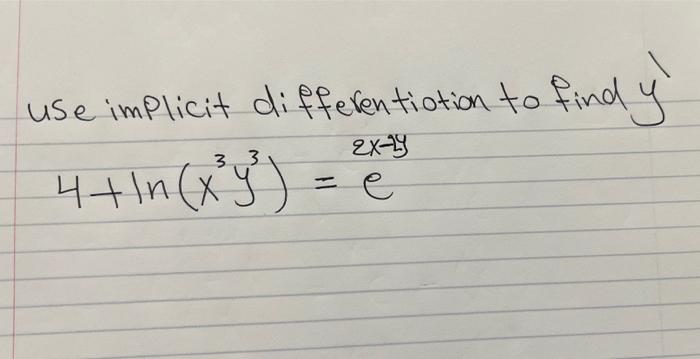 use implicit differentiotion to find y'
4+ln(x³y³) = e^(2x-2y)